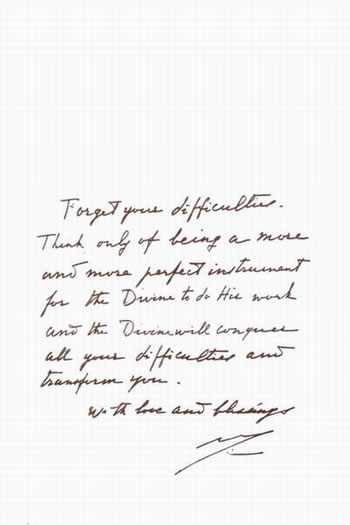 Forget your difficulties.
Think only of being a more
and more perfect instrument
for the Divine to do His work
and the Divine will conquer
all your difficulties and
transform you.
With love and blessings